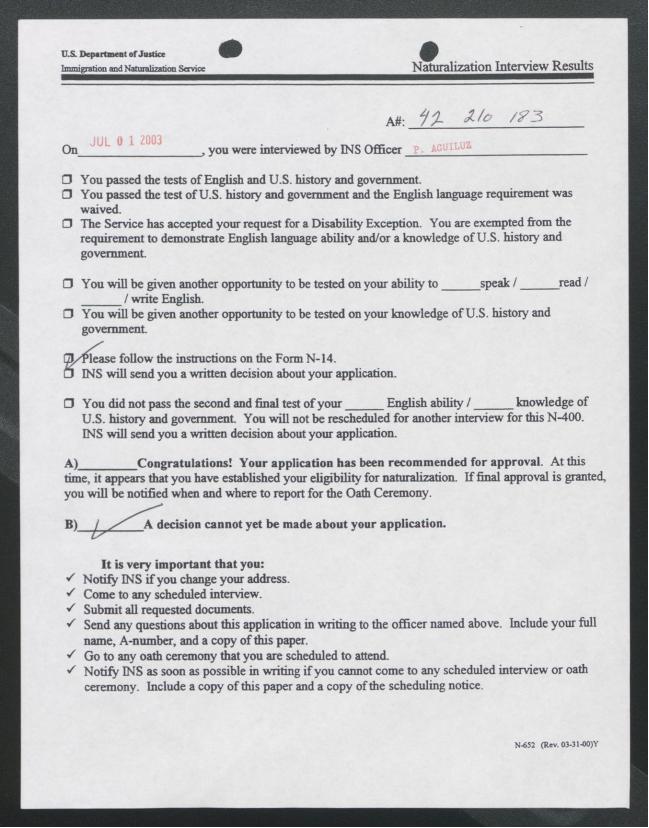 U.S. Department of Justice
Immigration and Naturalization Service
Naturalization Interview Results
A#: 42 210 183
On JUL 01 2003, you were interviewed by INS Officer P. AGUILUZ
❒ You passed the tests of English and U.S. history and government.
❒ You passed the test of U.S. history and government and the English language requirement was
waived.
❒ The Service has accepted your request for a Disability Exception. You are exempted from the
requirement to demonstrate English language ability and/or a knowledge of U.S. history and
government.
❒ You will be given another opportunity to be tested on your ability to ______speak / ______read /
______ / write English.
❒ You will be given another opportunity to be tested on your knowledge of U.S. history and
government.
❒ Please follow the instructions on the Form N-14.
❒ INS will send you a written decision about your application.
❒ You did not pass the second and final test of your ______ English ability / ______ knowledge of
U.S. history and government. You will not be rescheduled for another interview for this N-400.
INS will send you a written decision about your application.
A)_________Congratulations! Your application has been recommended for approval. At this
time, it appears that you have established your eligibility for naturalization. If final approval is granted,
you will be notified when and where to report for the Oath Ceremony.
B)____✓____A decision cannot yet be made about your application.
It is very important that you:
✓ Notify INS if you change your address.
✓ Come to any scheduled interview.
✓ Submit all requested documents.
✓ Send any questions about this application in writing to the officer named above. Include your full
name, A-number, and a copy of this paper.
✓ Go to any oath ceremony that you are scheduled to attend.
✓ Notify INS as soon as possible in writing if you cannot come to any scheduled interview or oath
ceremony. Include a copy of this paper and a copy of the scheduling notice.
N-652 (Rev. 03-31-00)Y